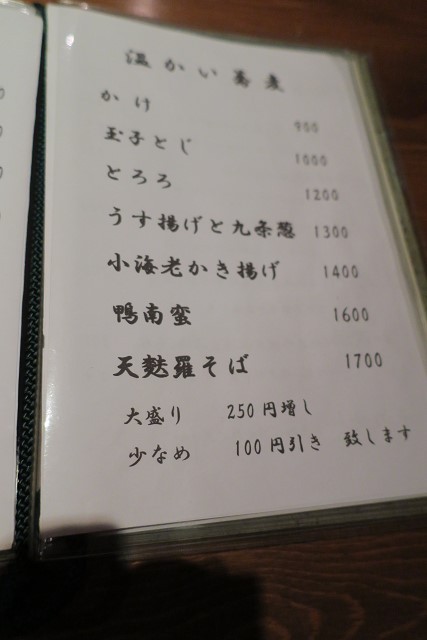 温かい蕎麦
かけ 900
玉子とじ 1000
とろろ 1200
うす揚げと九条葱 1300
小海老かき揚げ 1400
鴨南蛮 1600
天麩羅そば 1700
大盛り 250円増し
少なめ 100円引き 致します